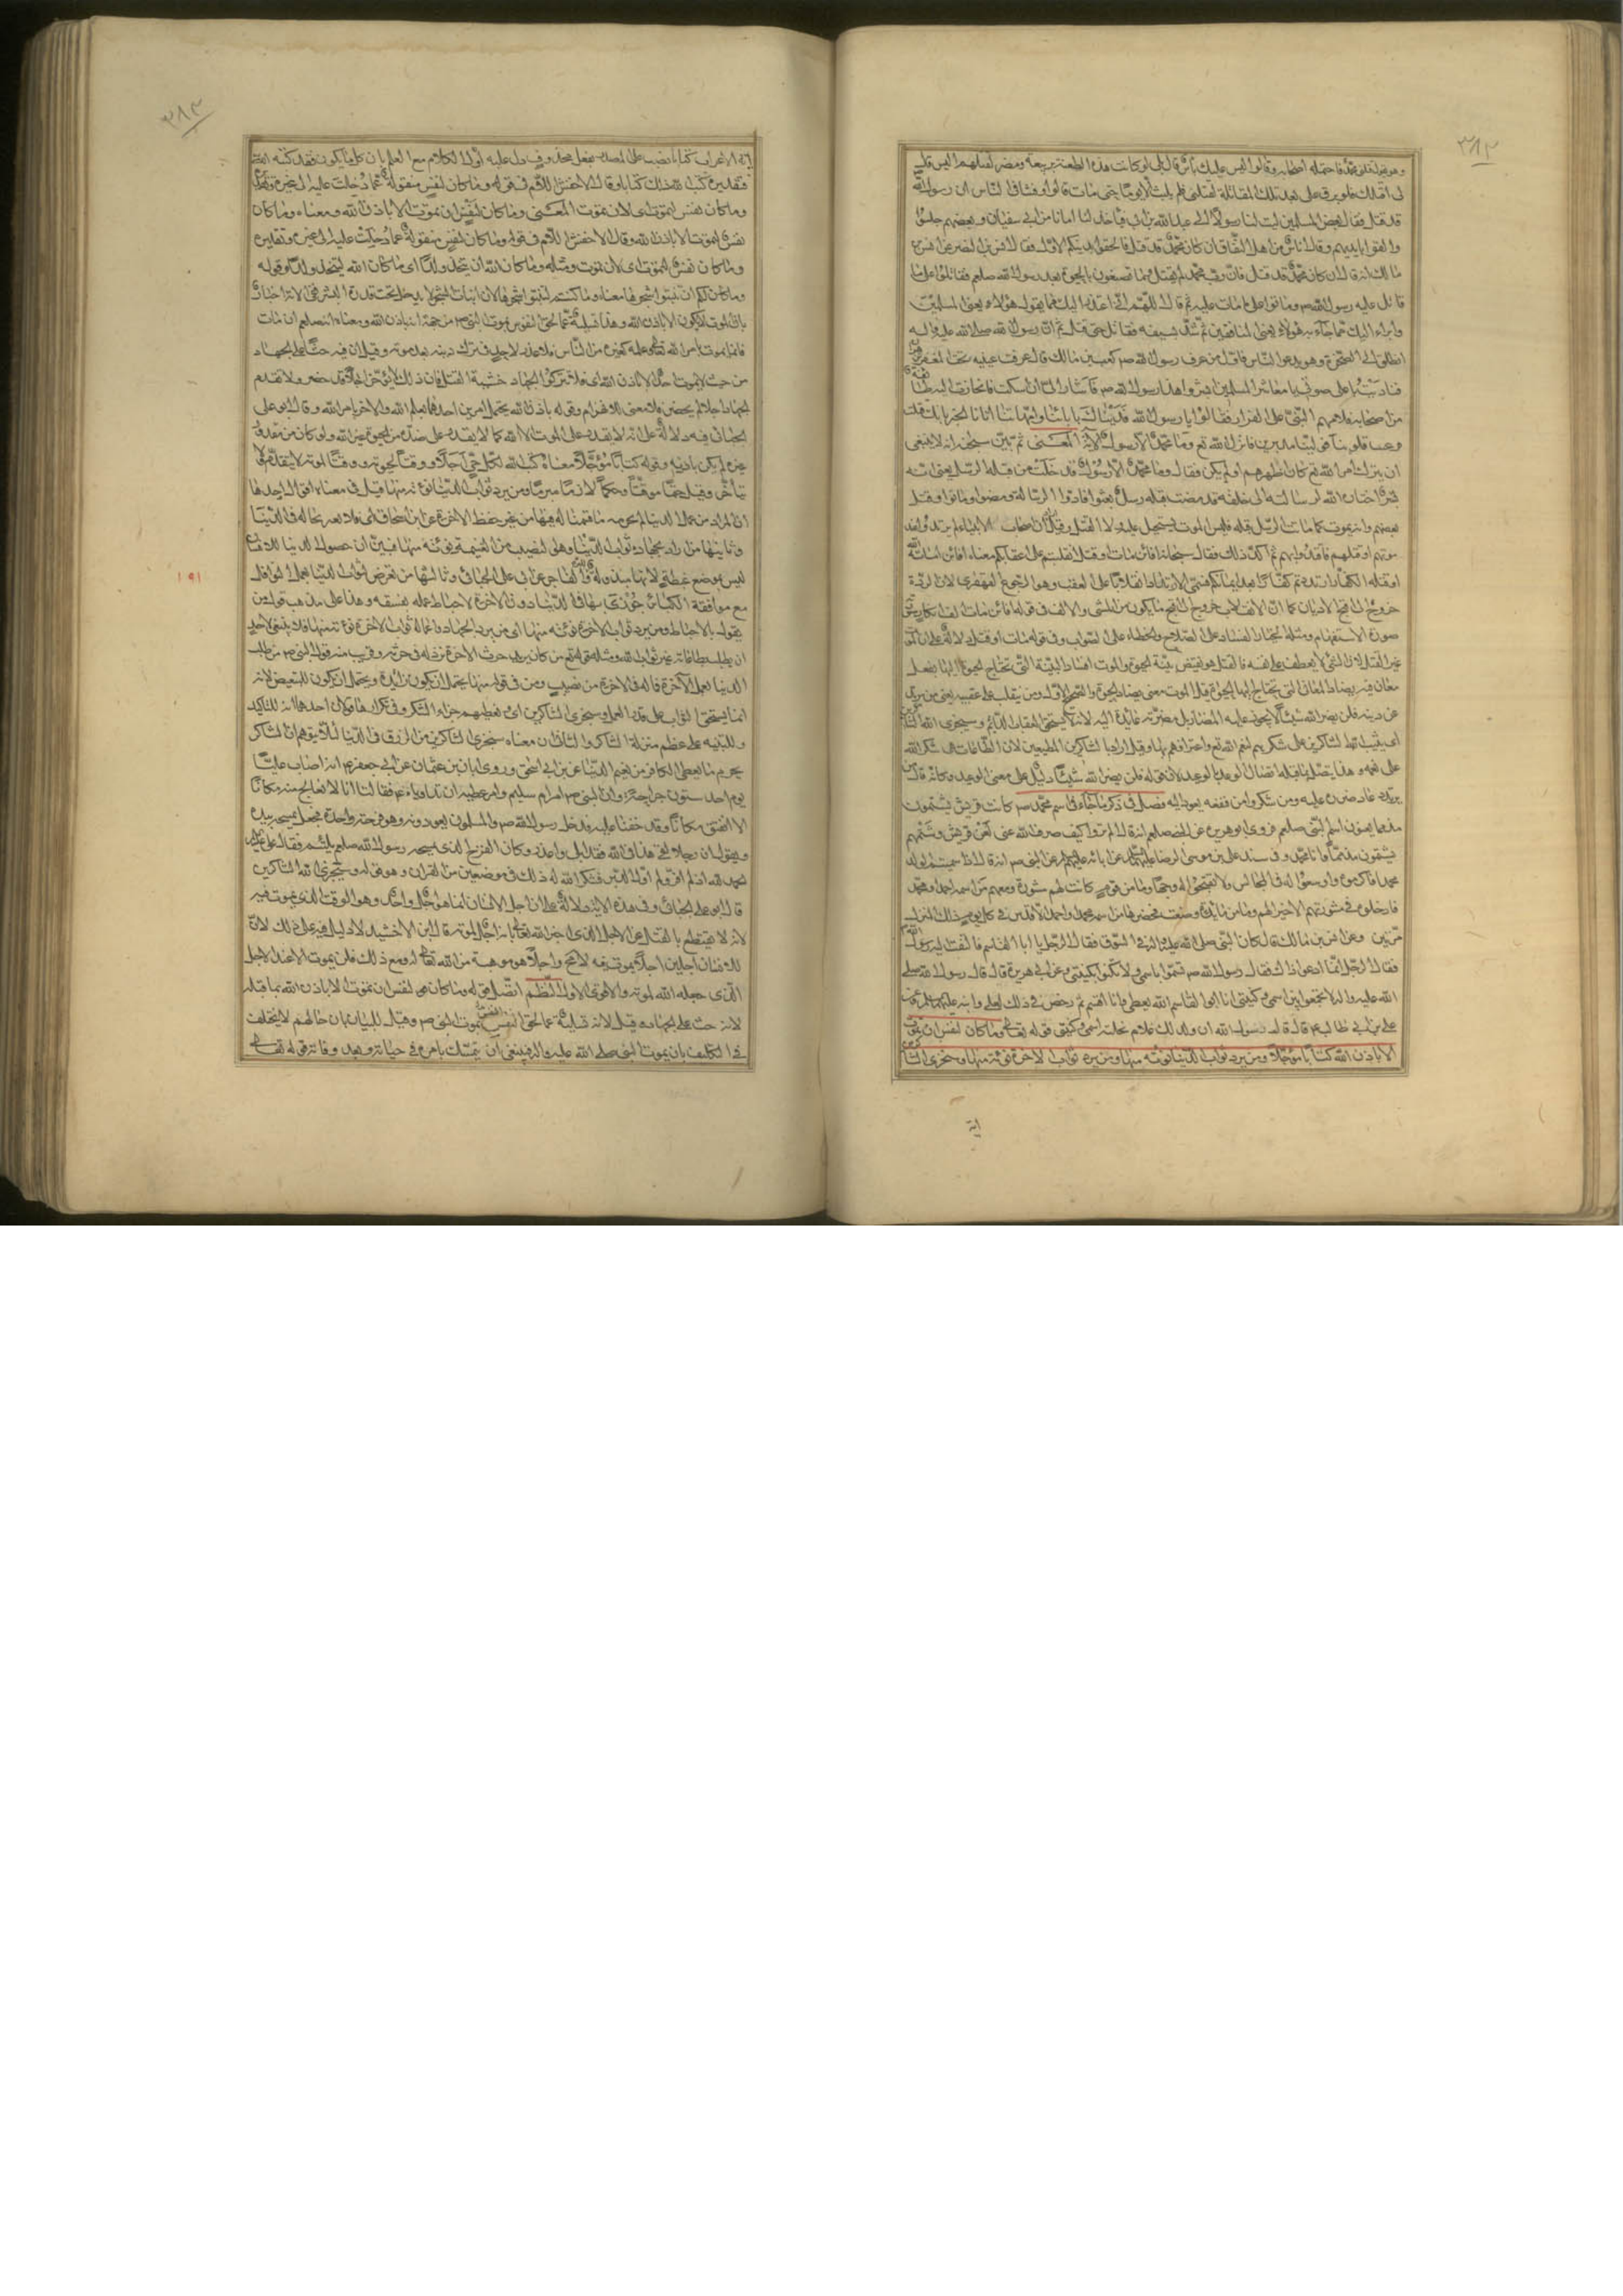 ٣٨٢
وهو يقول قتلني محمد فاحتمله اصحابه وقالوا ليس عليك بأس قال بلى لو كانت هذه الطعنة بربيعة ومضر لقتلتهم اليس قال
لى اقتلك فلو بزق على بعد تلك المقالة لقتلنى فلم يلبث الا يوما حتى مات قالوا وفشا فى الناس ان رسول الله
قد قتل فقال بعض المسلمين ليت لنا رسولا الى عبد الله بن ابى فيأخذ لنا امانا من ابى سفيان وبعضهم جلسوا
والقوا بايديهم وقال اناس من اهل النفاق ان كان محمد قد قتل فالحقوا بدينكم الاول فقال انس بن النضر عم انس بن
مالك يا قوم ان كان محمد قد قتل فان رب محمد لم يقتل وما تصنعون بالحيوة بعد رسول الله صلعم فقاتلوا على ما
قاتل عليه رسول الله ص وموتوا على ما مات عليه ثم قال اللهم انى اعتذر اليك مما يقوله هؤلاء يعنى المسلمين
وابراء اليك مما جاء به هؤلاء يعنى المنافقين ثم شد بسيفه فقاتل حتى قتل ثم ان رسول الله صلى الله عليه واله
انطلق الى الصخرة وهو يدعو الناس فاول من عرف رسول الله ص كعب بن مالك قال عرفت عينيه تحت المغفر
فناديت باعلى صوتى يا معاشر المسلمين ابشروا هذا رسول الله ص فاشار الى ان اسكت فانحازت اليه طائفة
من اصحابه فلامهم النبى على الفرار فقالوا يا رسول الله فديناك بابائنا وامهاتنا اتانا الخبر بانك قتلت
فرعبت قلوبنا فولينا مدبرين فانزل الله تع وما محمد الا رسول الاية المعنى ثم بين سبحانه انه لا ينبغى
ان يترك امر الله تع كان الرسول بين اظهرهم او لم يكن فقال وما محمد الا رسول قد خلت من قبله الرسل يعنى انه
بشر اختاره الله لرسالته الى خلقه قد مضت قبله رسل بعثوا فادوا الرسالة ومضوا وماتوا وقتل
بعضهم وانه يموت كما ماتت الرسل قبله فليس الموت بمستحيل عليه ولا القتل وقيل ان اصحاب الانبياء لم يرتدوا بعد
موتهم او قتلهم فاقتدوا بهم ثم اكد ذلك فقال سبحانه افائن مات او قتل انقلبتم على اعقابكم معناه افائن اماته الله
او قتله الكفار ارتددتم كفارا بعد ايمانكم فسمى الارتداد انقلابا على العقب وهو الرجوع القهقرى لان الردة
خروج الى اقبح الاديان كما ان الانقلاب خروج الى اقبح ما يكون من المشى والالف فى قوله افائن مات الف انكار بصورة
صورة الاستفهام ومثله اتختار الفساد على الصلاح والخطاء على الصواب وفى قوله مات او قتل دلالة على ان الموت
غير القتل لان الشئ لا يعطف على نفسه فالقتل هو نقيض بنية الحيوة والموت افساد البنية التى تحتاج الحيوة اليها بفعل
معان فيه يضاد المعانى التى تحتاج اليها الحيوة وقيل الموت معنى يضاد الحيوة والصحيح الاول ومن ينقلب على عقبيه يعنى من يرتد
عن دينه فلن يضر الله شيئا لانه لا يجوز عليه المضار بل مضرته عائدة اليه لانه يستحق العقاب الدائم وسيجزى الله الشاكرين
اى يثيب الله الشاكرين على شكرهم لنعم الله تع واعترافهم بها وقيل اراد بالشاكرين المطيعين لان الطاعات هى شكر الله
على نعمه وهذا يتصل بما قبله اتصال الوعد بالوعيد لان قوله فلن يضر الله شيئا دليل على معنى الوعيد فكانه قال من
يرتد عاد ضرره عليه ومن شكر وامن فنفعه يعود اليه فصل فى ذكر ما جاء فى اسم محمد ص كانت قريش يشتمون
مذمما يعنون اسم النبى صلعم فروى ابو هريرة عن النبى صلعم انه قال الم تروا كيف صرف الله عنى لعن قريش وشتمهم
يشتمون مذمما وانا محمد وفى مسند على بن موسى الرضا عليهما السلام عن ابائه عليهم السلام عن النبى ص انه قال اذا سميتم الولد
محمدا فاكرموه واوسعوا له فى المجالس ولا تقبحوا له وجها وما من قوم كانت لهم مشورة ومعهم من اسمه احمد ومحمد
فادخلوه فى مشورتهم الا خير لهم وما من مائدة وضعت فحضرها من اسمه محمد واحمد الا قدس فى كل يوم ذلك المنزل
مرتين وعن انس بن مالك قال كان النبى صلى الله عليه واله فى السوق فقال الرجل يا ابا القاسم فالتفت اليه رسول الله
فقال الرجل انما ادعو ذاك فقال رسول الله ص تسموا باسمى ولا تكنوا بكنيتى وعن ابى هريرة قال قال رسول الله صلى
الله عليه واله لا تجمعوا بين اسمى وكنيتى انا ابو القاسم الله يعطى وانا اقسم ثم رخص فى ذلك لعلى وابنه عليهما السلام عن
على بن ابى طالب ع قال قال رسول الله ان ولد لك غلام نحلته اسمى وكنيتى قوله تعالى وما كان لنفس ان تموت
الا باذن الله كتابا مؤجلا ومن يرد ثواب الدنيا نؤته منها ومن يرد ثواب الاخرة نؤته منها وسنجزى الشاكرين
اية
٣٨٣
الاعراب كتابا نصب على المصدر بفعل محذوف دل عليه اول الكلام مع العلم بان كل ما يكون فقد كتبه الله
فتقديره كتب الله ذلك كتابا وقال الاخفش اللام فى قوله وما كان لنفس منقولة عما دخلت عليه الى غيره وتقديره
وما كان نفس لتموت اى لان تموت المعنى وما كان لنفس ان تموت الا باذن الله ومعناه وما كان
نفس لتموت الا باذن الله وقال الاخفش اللام فى قوله وما كان لنفس منقولة عما دخلت عليه الى غيره وتقديره
وما كان نفس لتموت اى لان تموت ومثله وما كان الله ان يتخذ ولدا اى ما كان الله ليتخذ ولدا وقوله
وما كان لكم ان تنبتوا شجرها معناه وما كنتم لتنبتوا شجرها لان انبات الشجر لا يدخل تحت قدرة البشر فهى لانه اخبار
بان الموت لا يكون الا باذن الله وهذا تسلية عما لحق النفوس بموت النبى ص من جهة انه باذن الله ومعناه انه صلعم ان مات
فانما يموت بامر الله تعالى وعلمه كغيره من الناس فلا عذر لاحد فى ترك دينه بعد موته وقيل ان فيه حثا على الجهاد
من حيث لا يموت احد الا باذن الله اى فلا تتركوا الجهاد خشية القتل فان ذلك لا يؤخر اجلا قد حضر ولا تقدم
الجهاد اجلا لم يحضر فلا معنى للانهزام وقوله باذن الله يحتمل امرين احدهما بعلم الله والاخر بامر الله وقال ابو على
الجبائى فيه دلالة على انه لا يقدر على الموت الا الله كما لا يقدر على ضده من الحيوة غير الله ولو كان من مقدور
غيره لم يكن باذنه وقوله كتابا مؤجلا معناه كتب الله لكل حى اجلا ووقتا لحيوته ووقتا لموته لا يتقدم ولا
يتأخر وقيل حتما موقتا وحكما لازما مبرما ومن يرد ثواب الدنيا نؤته منها قيل فى معناه اقوال احدها
ان المراد من عمل للدنيا لم نحرمه ما قسمنا له فيها من غير حظ الاخرة عن ابن اسحاق اى فلا تغتر بحاله فى الدنيا
وثانيها من اراد بجهاده ثواب الدنيا وهى النصيب من الغنيمة نؤته منها فبين ان حصول الدنيا للانسان
ليس بموضع غبطة لانها مبذولة للبر والفاجر عن ابى على الجبائى وثالثها من تعرض لثواب الدنيا بعمل النوافل
مع موافقة الكبائر جوزى بها فى الدنيا دون الاخرة لاحباط عمله بفسقه وهذا على مذهب قول من
يقول بالاحباط ومن يرد ثواب الاخرة نؤته منها اى من يرد بالجهاد واعماله ثواب الاخرة نؤته منها فلا ينبغى لاحد
ان يطلب بطاعاته غير ثواب الله ومثله قوله تع من كان يريد حرث الاخرة نزد له فى حرثه وقريب منه قول النبى ص من طلب
الدنيا بعمل الاخرة فما له فى الاخرة من نصيب ومن فى قوله منها يحتمل ان يكون زائدة ويحتمل ان يكون للتبعيض لانه
انما يستحق الثواب على قدر العمل وسنجزى الشاكرين اى نعطيهم جزاء الشكر وفى تكرارها قولان احدهما انه للتاكيد
وللتنبيه على عظم منزلة الشاكر والثانى ان معناه سنجزى الشاكرين من الرزق فى الدنيا لئلا يتوهم ان الشاكر
يحرم ما يعطى الكافر من نعيم الدنيا عن ابن اسحق وروى ابان بن عثمان عن ابى جعفر ع انه اصاب عليا
يوم احد ستون جراحة وان النبى ص امر ام سليم وام عطية ان تداوياه فقالتا انا لا نعالج منه مكانا
الا انفتق مكان وقد خفنا عليه فدخل رسول الله ص والمسلمون يعودونه وهو قرحة واحدة فجعل يمسحه بيده
ويقول ان رجلا لقى هذا فى الله فقد ابلى واعذر وكان القرح الذى يمسحه رسول الله صلعم يلتئم فقال على ع
الحمد لله اذ لم افر ولم اول الدبر فشكر الله له ذلك فى موضعين من القران وهو قوله وسيجزى الله الشاكرين
قال ابو على الجبائى وفى هذه الاية دلالة على ان اجل الانسان انما هو اجل واحد وهو الوقت الذى يموت فيه
لانه لا يقتطع بالقتل عن الاجل الذى اخبر الله تعالى بانه اجل لموته قال ابن الاخشيد لا دليل فيه على ذلك لان
للانسان اجلين اجلا يموت فيه لا محالة واجلا هو موهبة من الله تعالى له ومع ذلك فلن يموت الا عند الاجل
الذى جعله الله لموته والاقوى الاول النظم اتصل قوله وما كان لنفس ان تموت الا باذن الله بما قبله
لانه حث على الجهاد وقيل لانه تسلية عما لحق النفس بموت النبى ص وقيل للبيان بان حالهم لا يختلف
فى التكليف بان يموت النبى صلى الله عليه واله فينبغى ان يتمسك بامره فى حياته وبعد وفاته قوله تعالى
١٩١